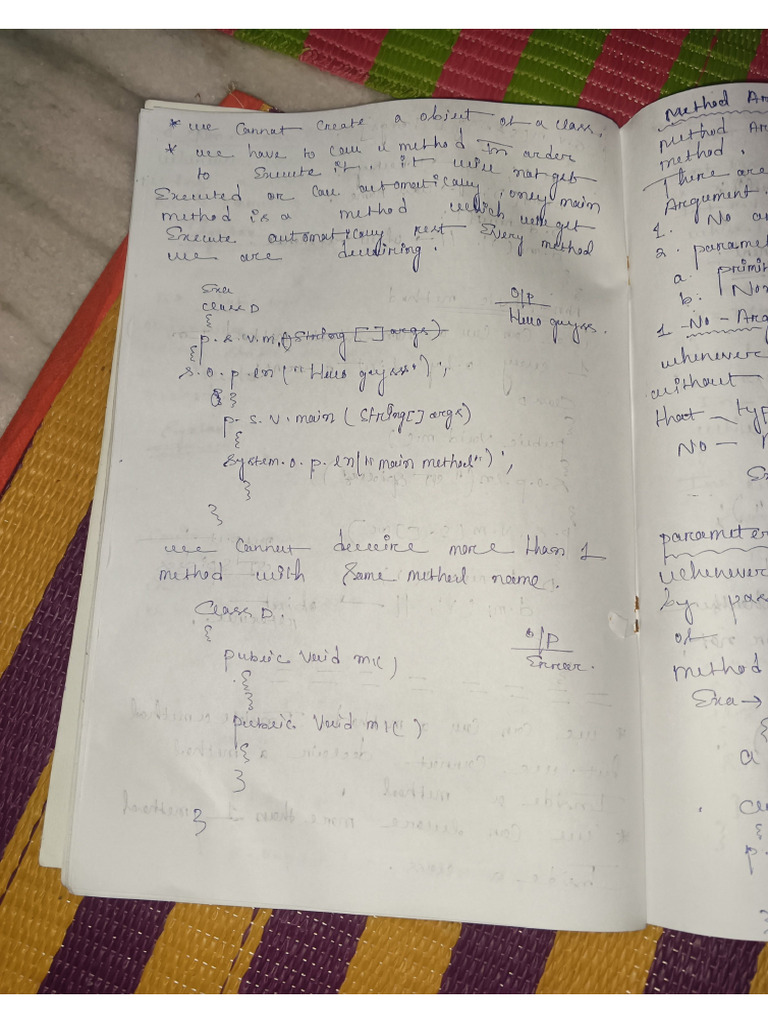 * we cannot create a object of a class.
* we have to call a method in order
to Execute it. it will not get
Executed or call automatically, only main
method is a method which will get
Execute automatically rest Every method
we are declairing.
Exa
class D
O/p
{
Hello guyss.
p. s. v. m. () String [ ] args)
{
s. o. p. ln (" Hello guysss") ;
} }
p. s. v. main ( String[] args)
{
System. o. p. ln(" main method") ;
}
}
we cannot declaire more than 1
method with same method name.
Class D.
{
O/p
public void m1( )
Error.
{
}
public void m1( )
{
}
}
Method Ar
Method Ar
method.
There are
Argument.
1. No a
2. paramet
a. primit
b. Non
1 - No - Arg
whenever
without
that typ
No -
Ex
parameter
whenever
by pas
of
method
Exa →
{
a
cl
{
p.